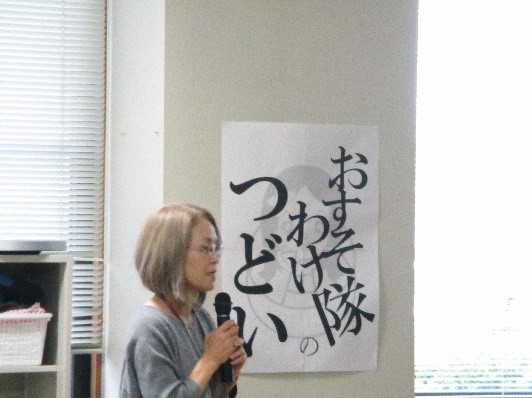 おすそ
わけ隊の
つどい